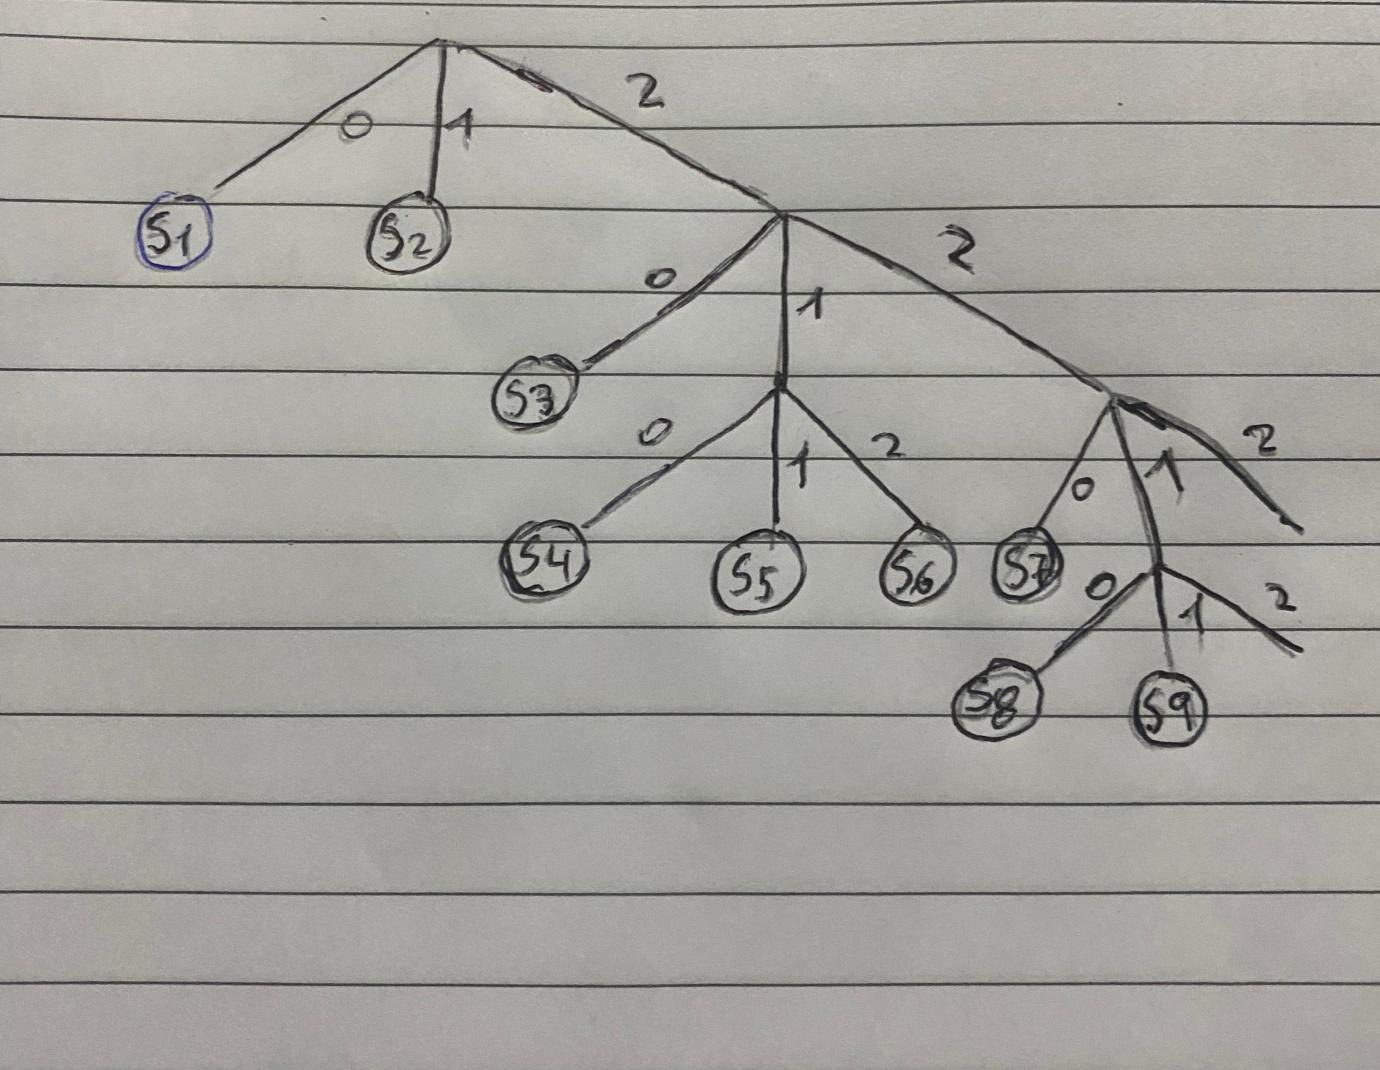 2
0 1
S1 S2 2
0 1
S3
0 1 2 2
0 1
S4 S5 S6 S7
0 1 2
S8 S9